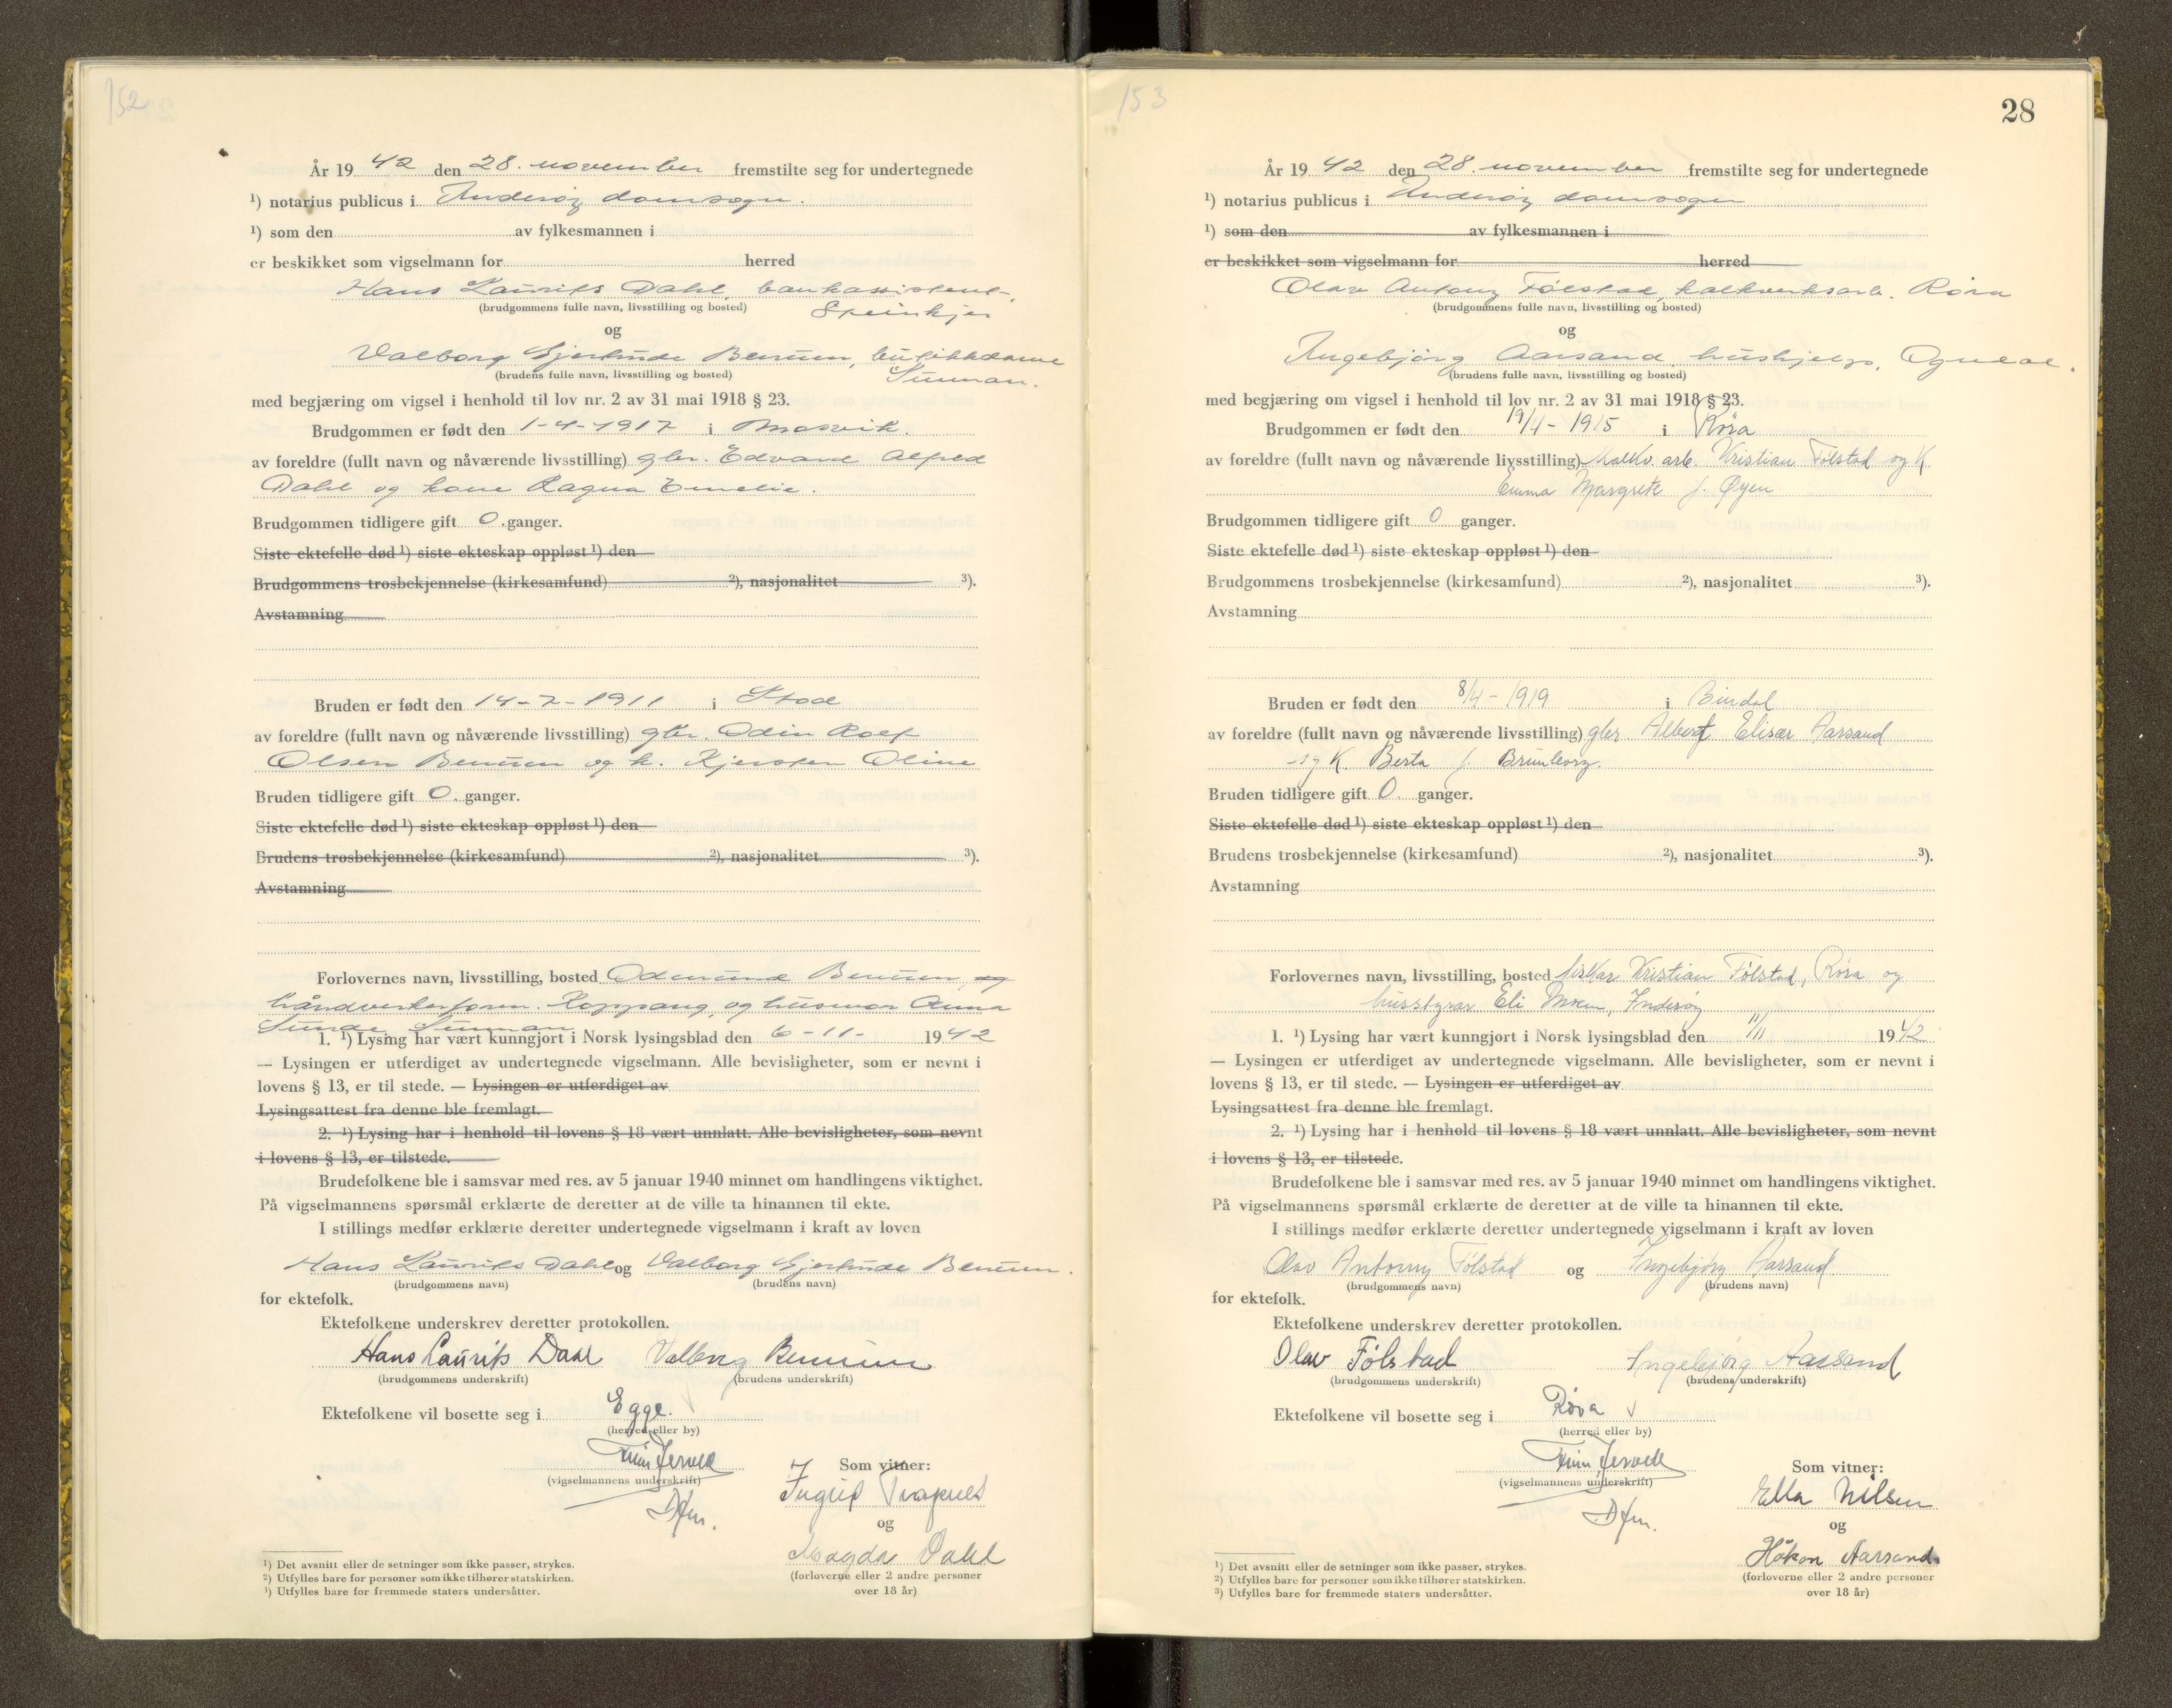 152
År 19 42 den 28. november fremstilte seg for undertegnede
¹) notarius publicus i Inderøy domsogn.
¹) som den av fylkesmannen i
er beskikket som vigselmann for herred
Hans Laurits Dahl, bankassistent,
(brudgommens fulle navn, livsstilling og bosted) Steinkjer
og
Valborg Gjertrude Benum, butikkdame
(brudens fulle navn, livsstilling og bosted) Sunnan.
med begjæring om vigsel i henhold til lov nr. 2 av 31 mai 1918 § 23.
Brudgommen er født den 1-4-1917 i Mosvik.
av foreldre (fullt navn og nåværende livsstilling) gbr. Edvard Alfred
Dahl og kone Ragna Emelie.
Brudgommen tidligere gift 0. ganger.
Siste ektefelle død ¹) siste ekteskap oppløst ¹) den
Brudgommens trosbekjennelse (kirkesamfund) ²), nasjonalitet ³).
Avstamning
Bruden er født den 14-2-1911 i Stod
av foreldre (fullt navn og nåværende livsstilling) gbr. Odin Rolf
Olsen Benum og k. Kjersten Oline
Bruden tidligere gift 0. ganger.
Siste ektefelle død ¹) siste ekteskap oppløst ¹) den
Brudens trosbekjennelse (kirkesamfund) ²), nasjonalitet ³).
Avstamning
Forlovernes navn, livsstilling, bosted Odmund Benum, og
håndverkerform. Koppang, og husmor Anna
Sunde, Sunnan
1. ¹) Lysing har vært kunngjort i Norsk lysingsblad den 6-11- 1942
— Lysingen er utferdiget av undertegnede vigselmann. Alle bevisligheter, som er nevnt i
lovens § 13, er til stede. — Lysingen er utferdiget av
Lysingsattest fra denne ble fremlagt.
2. ¹) Lysing har i henhold til lovens § 18 vært unnlatt. Alle bevisligheter, som nevnt
i lovens § 13, er tilstede.
Brudefolkene ble i samsvar med res. av 5 januar 1940 minnet om handlingens viktighet.
På vigselmannens spørsmål erklærte de deretter at de ville ta hinannen til ekte.
I stillings medfør erklærte deretter undertegnede vigselmann i kraft av loven
Hans Laurits Dahl og Valborg Gjertrude Benum.
(brudgommens navn) (brudens navn)
for ektefolk.
Ektefolkene underskrev deretter protokollen.
Hans Laurits Daal Valborg Benum
(brudgommens underskrift) (brudens underskrift)
Ektefolkene vil bosette seg i Egge.
(herred eller by)
(vigselmannens underskrift) Som vitner:
Dfm. Ingrid
og
Magda Dahl
(forloverne eller 2 andre personer
over 18 år)
¹) Det avsnitt eller de setninger som ikke passer, strykes.
²) Utfylles bare for personer som ikke tilhører statskirken.
³) Utfylles bare for fremmede staters undersåtter.
153
28
År 19 42 den 28. november fremstilte seg for undertegnede
¹) notarius publicus i Inderøy domsogn
¹) som den av fylkesmannen i
er beskikket som vigselmann for herred
Olav Antony Følstad, kalkverksarb. Røra
(brudgommens fulle navn, livsstilling og bosted)
og
Ingebjørg Aarsand, hushjelp, Ogndal.
(brudens fulle navn, livsstilling og bosted)
med begjæring om vigsel i henhold til lov nr. 2 av 31 mai 1918 § 23.
Brudgommen er født den 19/4 - 1915 i Røra
av foreldre (fullt navn og nåværende livsstilling) Kalkv. arb. Kristian Følstad og K.
Emma Margrete f. Øyen
Brudgommen tidligere gift 0 ganger.
Siste ektefelle død ¹) siste ekteskap oppløst ¹) den
Brudgommens trosbekjennelse (kirkesamfund) ²), nasjonalitet ³).
Avstamning
Bruden er født den 8/4 - 1919 i Bindal
av foreldre (fullt navn og nåværende livsstilling) gbr Albert Elisær Aarsand
og K. Berta f. Brunborg.
Bruden tidligere gift 0. ganger.
Siste ektefelle død ¹) siste ekteskap oppløst ¹) den
Brudens trosbekjennelse (kirkesamfund) ²), nasjonalitet ³).
Avstamning
Forlovernes navn, livsstilling, bosted fisker Kristian Følstad, Røra og
husstyrar Eli Inderøy
1. ¹) Lysing har vært kunngjort i Norsk lysingsblad den 11/11 1942
— Lysingen er utferdiget av undertegnede vigselmann. Alle bevisligheter, som er nevnt i
lovens § 13, er til stede. — Lysingen er utferdiget av
Lysingsattest fra denne ble fremlagt.
2. ¹) Lysing har i henhold til lovens § 18 vært unnlatt. Alle bevisligheter, som nevnt
i lovens § 13, er tilstede.
Brudefolkene ble i samsvar med res. av 5 januar 1940 minnet om handlingens viktighet.
På vigselmannens spørsmål erklærte de deretter at de ville ta hinannen til ekte.
I stillings medfør erklærte deretter undertegnede vigselmann i kraft av loven
Olav Antony Følstad og Ingebjørg Aarsand
(brudgommens navn) (brudens navn)
for ektefolk.
Ektefolkene underskrev deretter protokollen.
Olav Følstad Ingebjørg Aarsand
(brudgommens underskrift) (brudens underskrift)
Ektefolkene vil bosette seg i Røra
(herred eller by)
(vigselmannens underskrift) Som vitner:
Dfm. Ella Nilsen
og
Håkon Aarsand
(forloverne eller 2 andre personer
over 18 år)
¹) Det avsnitt eller de setninger som ikke passer, strykes.
²) Utfylles bare for personer som ikke tilhører statskirken.
³) Utfylles bare for fremmede staters undersåtter.